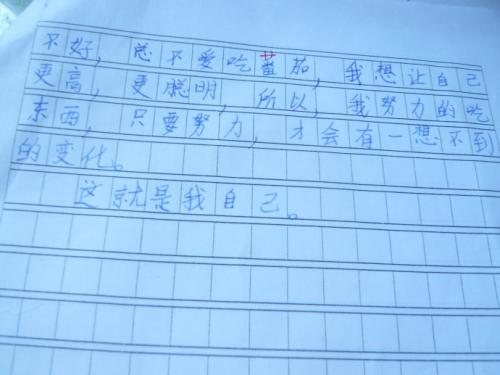 不好，总不爱吃蕃茄，我想让自己
更高，更聪明，所以，我努力的吃
东西，只要努力，才会有一想不到
的变化。
这就是我自己。